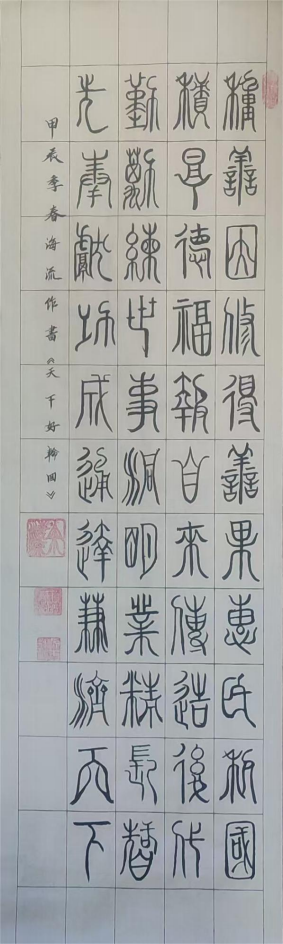 種善因修得善果惠民利國
積厚德福報自來傳造後代
勤練世事洞明業精長智
先奉獻功成通達兼濟天下
甲辰季春海流作書《天下好輪回》